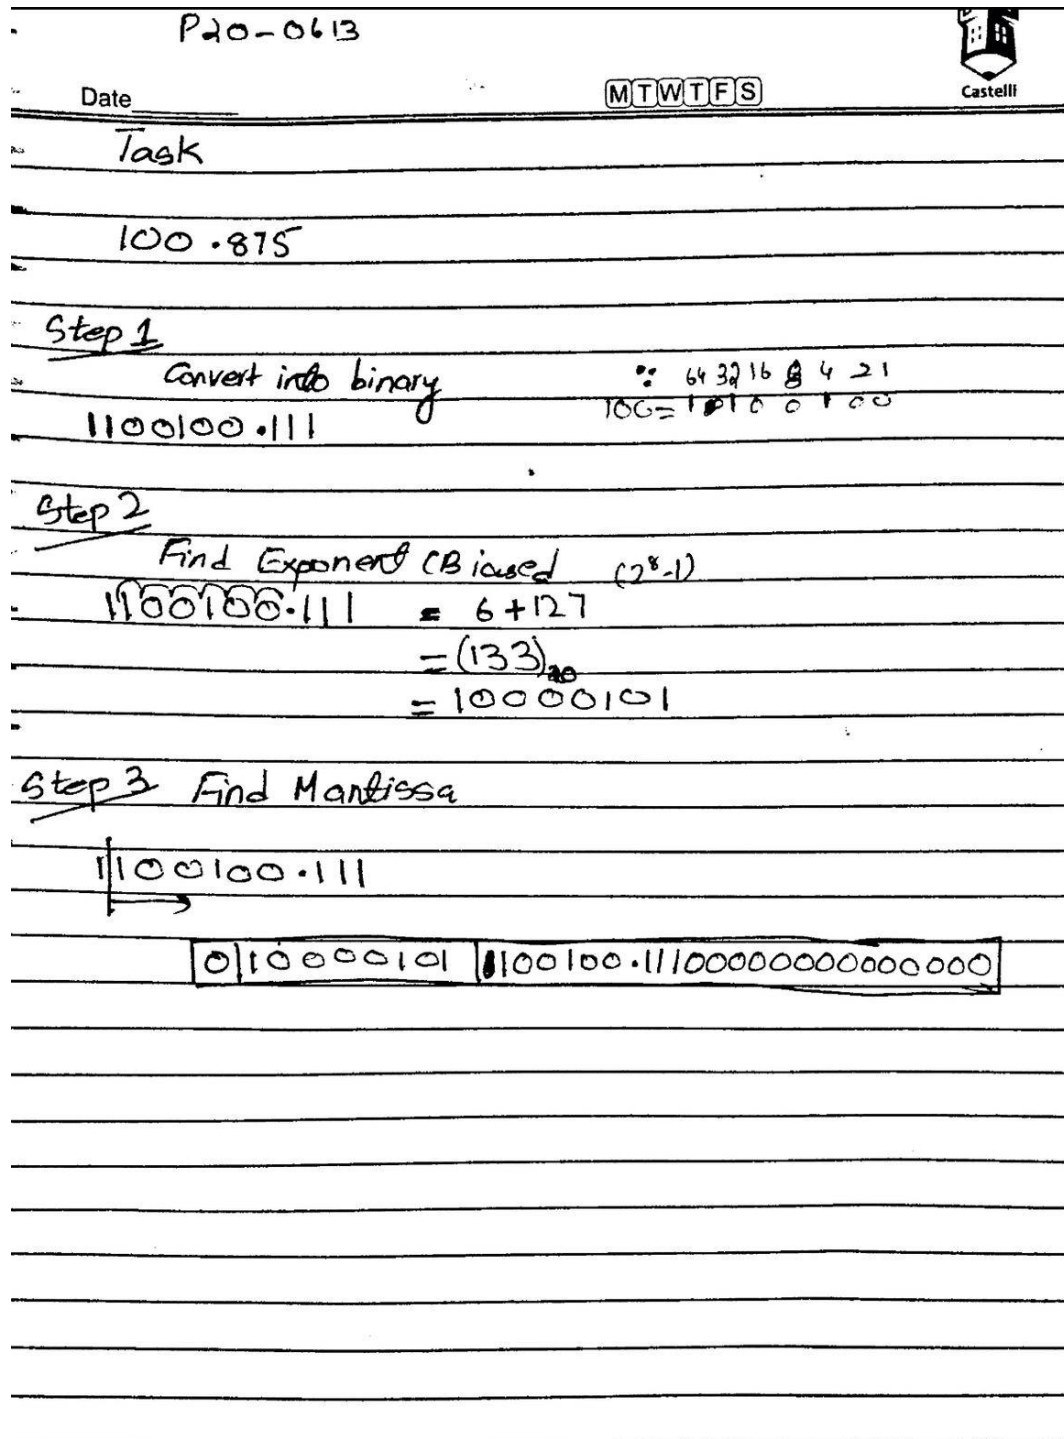 P20-0613
Date MTWTFS Castelli
Task
100.875
Step 1
Convert into binary ∵ 64 32 16 8 4 2 1
1100100.111 100= 1 1 0 0 1 0 0
Step 2
Find Exponent (Biased (2⁸-1)
1100100.111 = 6+127
= (133)₁₀
= 10000101
Step 3 Find Mantissa
1|100100.111
0|10000101|100100.11100000000000000